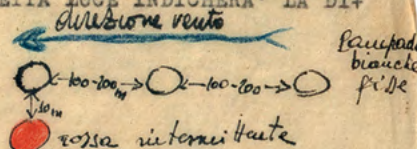 ETTA LUCE INDICHERA' LA DI+
direzione vento
Lampade
bianche
fisse
100-200 m 100-200
10m
rossa intermittente